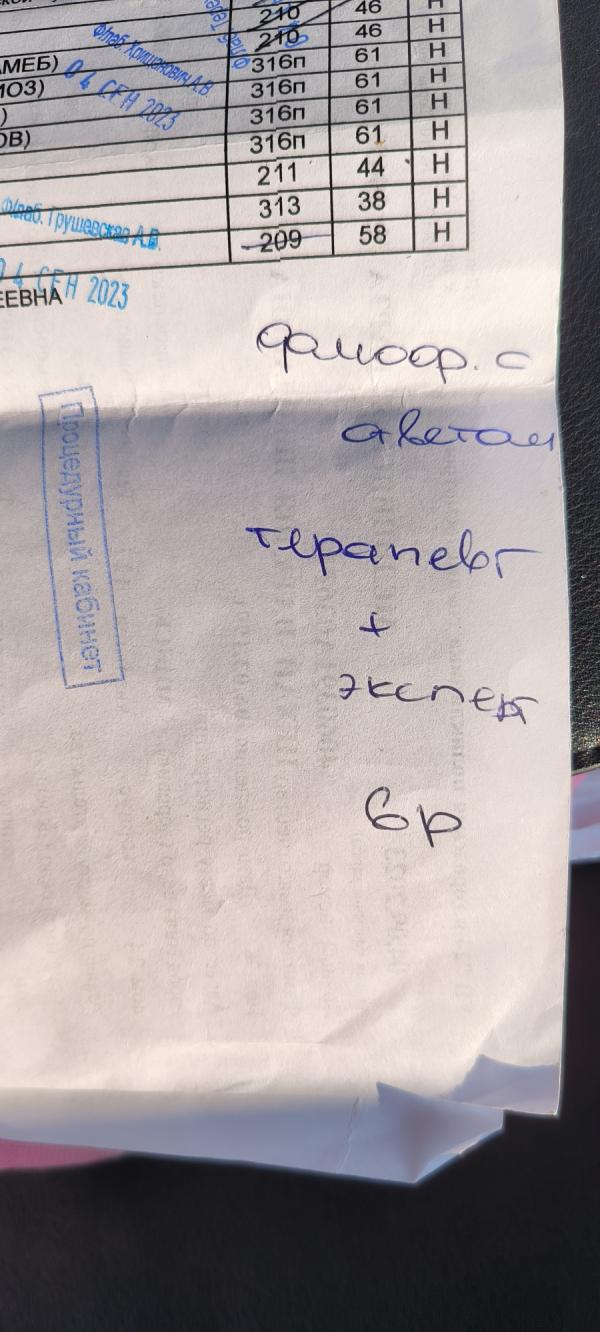 210 46 Н
210 46 Н
АМЕБ) 316п 61 Н
ИОЗ) 316п 61 Н
) 316п 61 Н
ОВ) 316п 61 Н
211 44 Н
313 38 Н
209 58 Н
Ф/лаб. Хрищанович А.В.
04 СЕН 2023
Ф/лаб. Грушевская А.В.
04 СЕН 2023
ЕЕВНА
флюор. с
аветом
терапевт
+
эксперт
6р
Процедурный кабинет